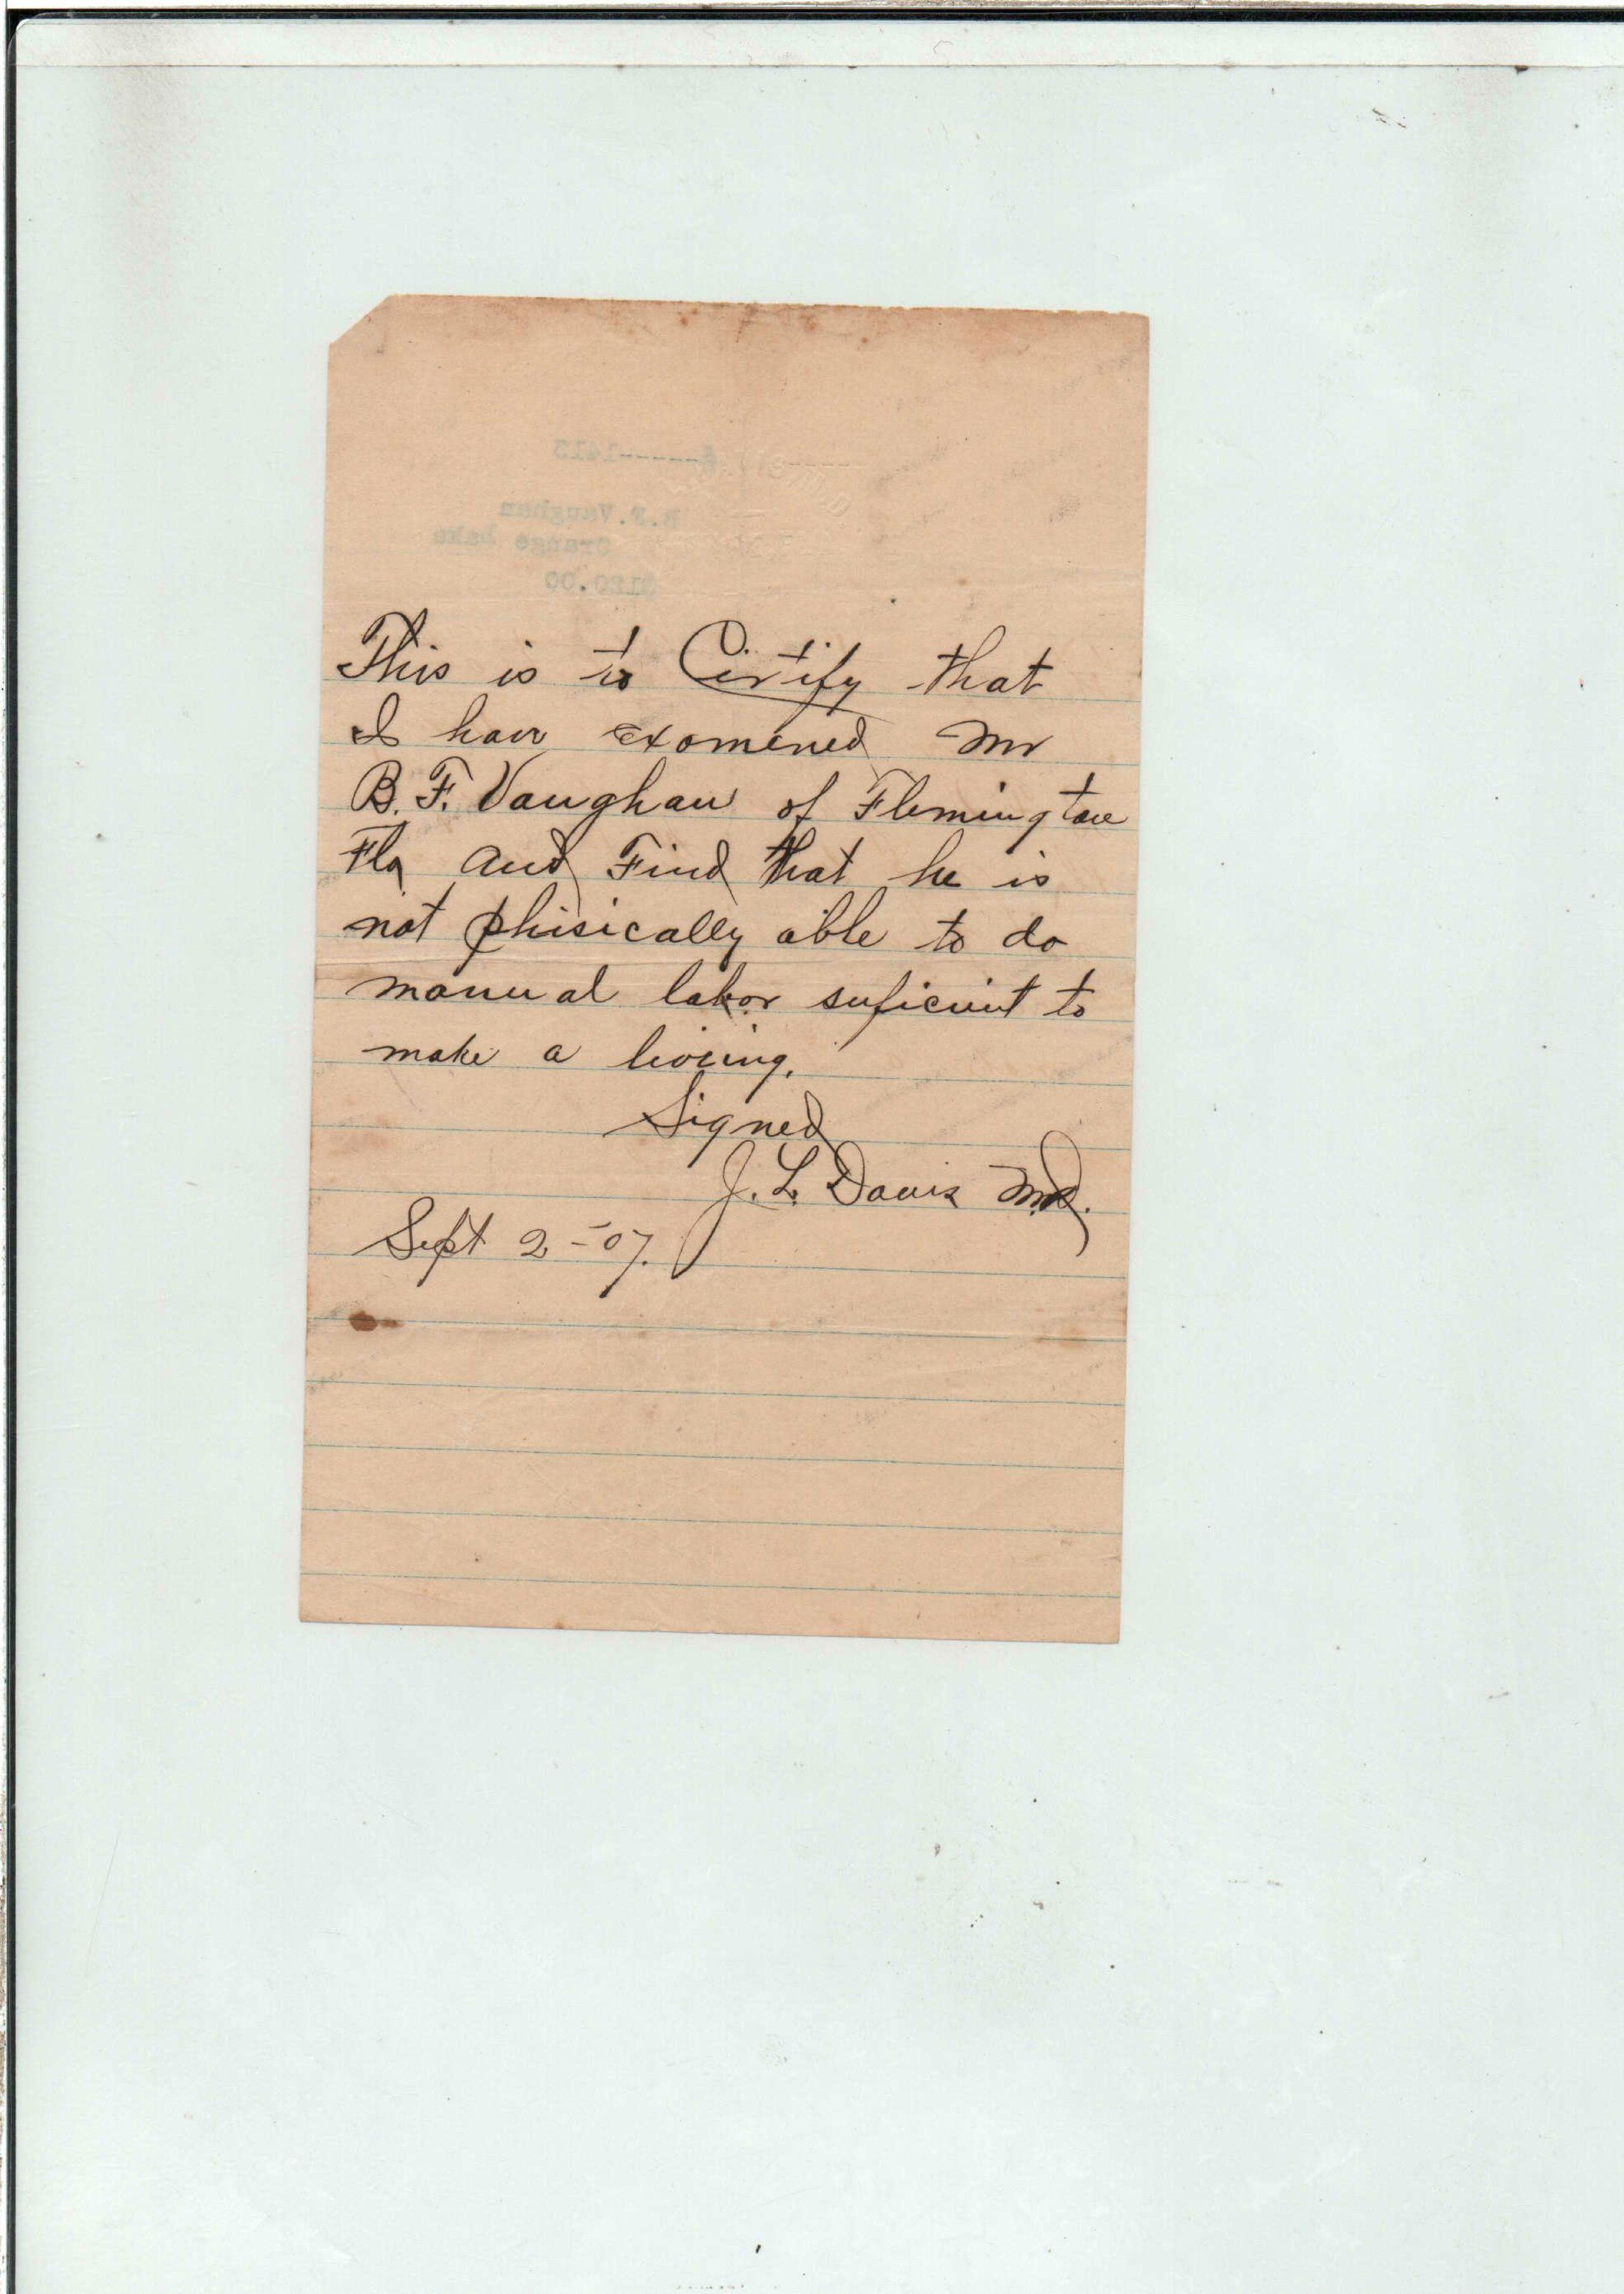 #-----1413
B.F.Vaughan
Orange Lake
$120.00
This is to Certify that
I have examened Mr
B. F. Vaughan of Flemington
Fla and Find that he is
not phisically able to do
manual labor suficient to
make a living.
Signed
J. L. Davis M.D.
Sept 2-07.